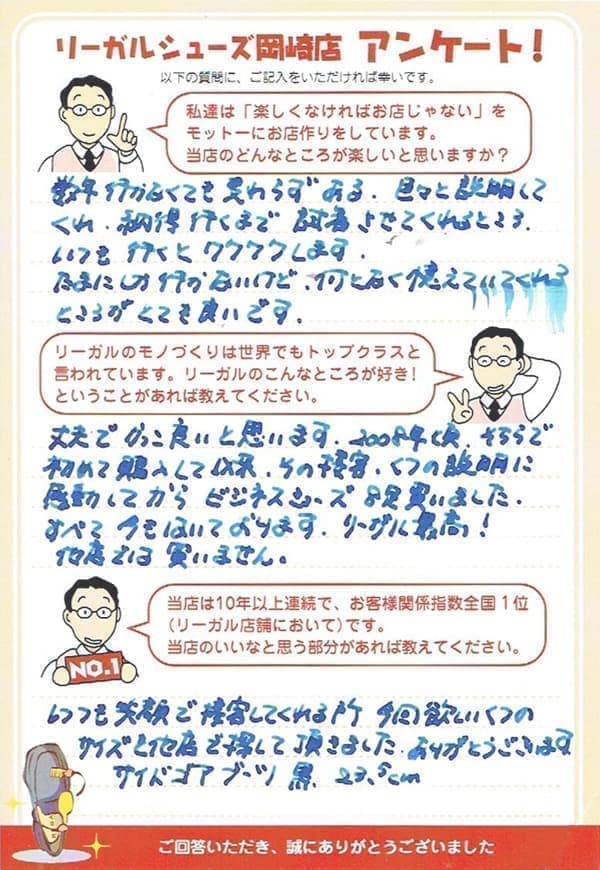 リーガルシューズ岡崎店 アンケート!
以下の質問に、ご記入をいただければ幸いです。
私達は「楽しくなければお店じゃない」を
モットーにお店作りをしています。
当店のどんなところが楽しいと思いますか?
数年行かなくても変わらずある、色々と説明して
くれ、納得行くまで試着させてくれるところ、
いつも行くとワクワクします。
たまにしか行かないけど、何となく憶えていてくれる
ところがとても良いです。
リーガルのモノづくりは世界でもトップクラスと
言われています。リーガルのこんなところが好き!
ということがあれば教えてください。
丈夫でかっこ良いと思います、2008年頃、そちらで
初めて購入して以来、その接客、くつの説明に
感動してから ビジネスシューズ 8足買いました。
すべて今もはいております。リーガル最高!
他店では買いません。
当店は10年以上連続で、お客様関係指数全国1位
(リーガル店舗において)です。
当店のいいなと思う部分があれば教えてください。
NO.1
いつも笑顔で接客してくれる所 今回欲しいくつの
サイズを他店で探して頂きました ありがとうございます
サイドゴアブーツ 黒 23.5cm
ご回答いただき、誠にありがとうございました